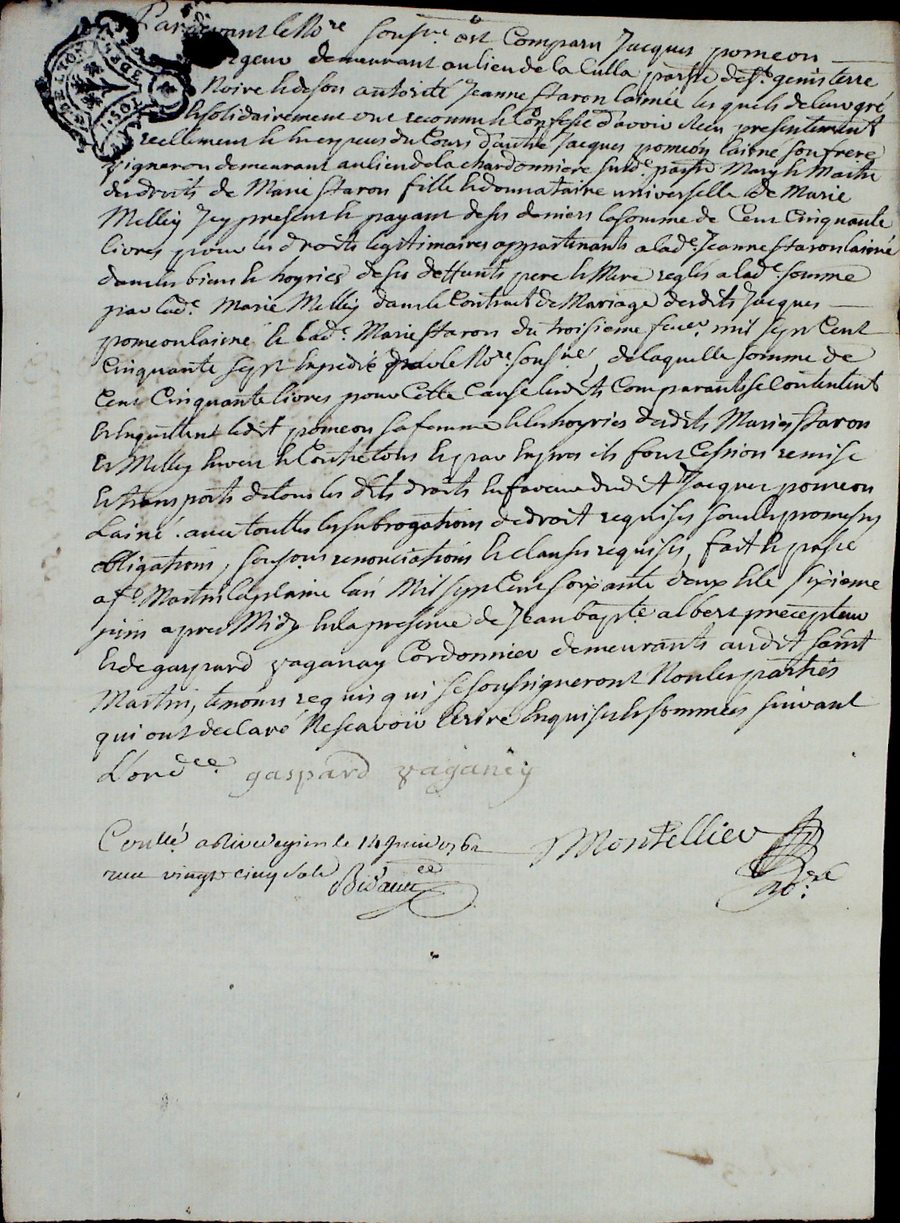 Pardevant le No.re sousne. est Comparu Jacques pomeon
demeurant au lieu de la Culla parsse de st. genis terre
Noire & de son autorité Jeanne staron lainée les quels de leur gré
& solidairement ont reconnu & Confessé d'avoir Receu presentement
reellement & en especes du Cours d'autre Jacques pomeon lainé son frere
vigneron demeurant au lieu de la chardonniere susde. parsse Mary & Maitre
des droits de Marie staron fille & donnataire universelle de Marie
Melley Icy present & payant de ses deniers la somme de Cent Cinquante
livres pour les droits legitimaires appartenants a lade. Jeanne staron lainée
dans les biens & hoyries de ses deffunts pere & Mere reglés a lade. somme
par lade. Marie Melley dans le Contrat de Mariage desdits Jacques
pomeon lainé & lade. Marie staron du troisieme fever. mil sept Cent
Cinquante sept Expedié par le No.re sousné, de laquelle somme de
Cent Cinquante livres pour Cette Cause lesdts Comparants se Contentent
& Enquittent ledit pomeon sa femme & les hoyries desdits Maries staron
& Melley Envers & Contre tous & par Expres ils font Cession remise
& transports de tous les dits droits En faveur dudit Jacques pomeon
Lainé avec touttes les subrogations de droit requises sous les promesses
obligations, renonciations & clauses requises, fait & passé
a st. Martin la plaine l'an Mil sept Cent soixante deux & le sixieme
juin apres Midy En la presence de Jean bapte. albert precepteur
& de gaspard vaganay Cordonnier demeurants audit saint
Martin, temoins requis qui se soussigneront Non les parties
qui ont declaré Ne scavoir Ecrire Enquises & sommées suivant
L'ordce. gaspard vaganey
Conllé a Rivedegier le 14 juin 1762 Montellier
reçu vingt cinq sols No.re